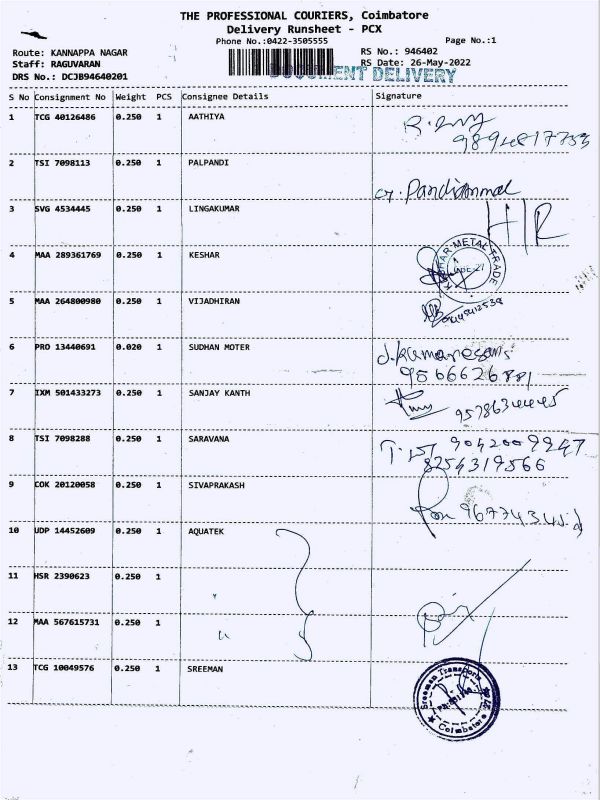 THE PROFESSIONAL COURIERS, Coimbatore
Delivery Runsheet - PCX
Phone No.:0422-3505555
Page No.:1
Route: KANNAPPA NAGAR
RS No.: 946402
Staff: RAGUVARAN
RS Date: 26-May-2022
DOCUMENT DELIVERY
DRS No.: DCJB94640201
S No Consignment No Weight PCS Consignee Details Signature
1 TCG 40126486 0.250 1 AATHIYA
2 TSI 7098113 0.250 1 PALPANDI
Pandiammal
3 SVG 4534445 0.250 1 LINGAKUMAR
H/R
4 MAA 289361769 0.250 1 KESHAR
METAL TRADE
5 MAA 264800980 0.250 1 VIJADHIRAN
6 PRO 13440691 0.020 1 SUDHAN MOTER
J.Kumaresan
9566626881
7 IXM 501433273 0.250 1 SANJAY KANTH
8 TSI 7098288 0.250 1 SARAVANA
9042009947
8254319566
9 COK 20120058 0.250 1 SIVAPRAKASH
10 UDP 14452609 0.250 1 AQUATEK
11 HSR 2390623 0.250 1
12 MAA 567615731 0.250 1
13 TCG 10049576 0.250 1 SREEMAN
Sreeman Transports
Coimbatore